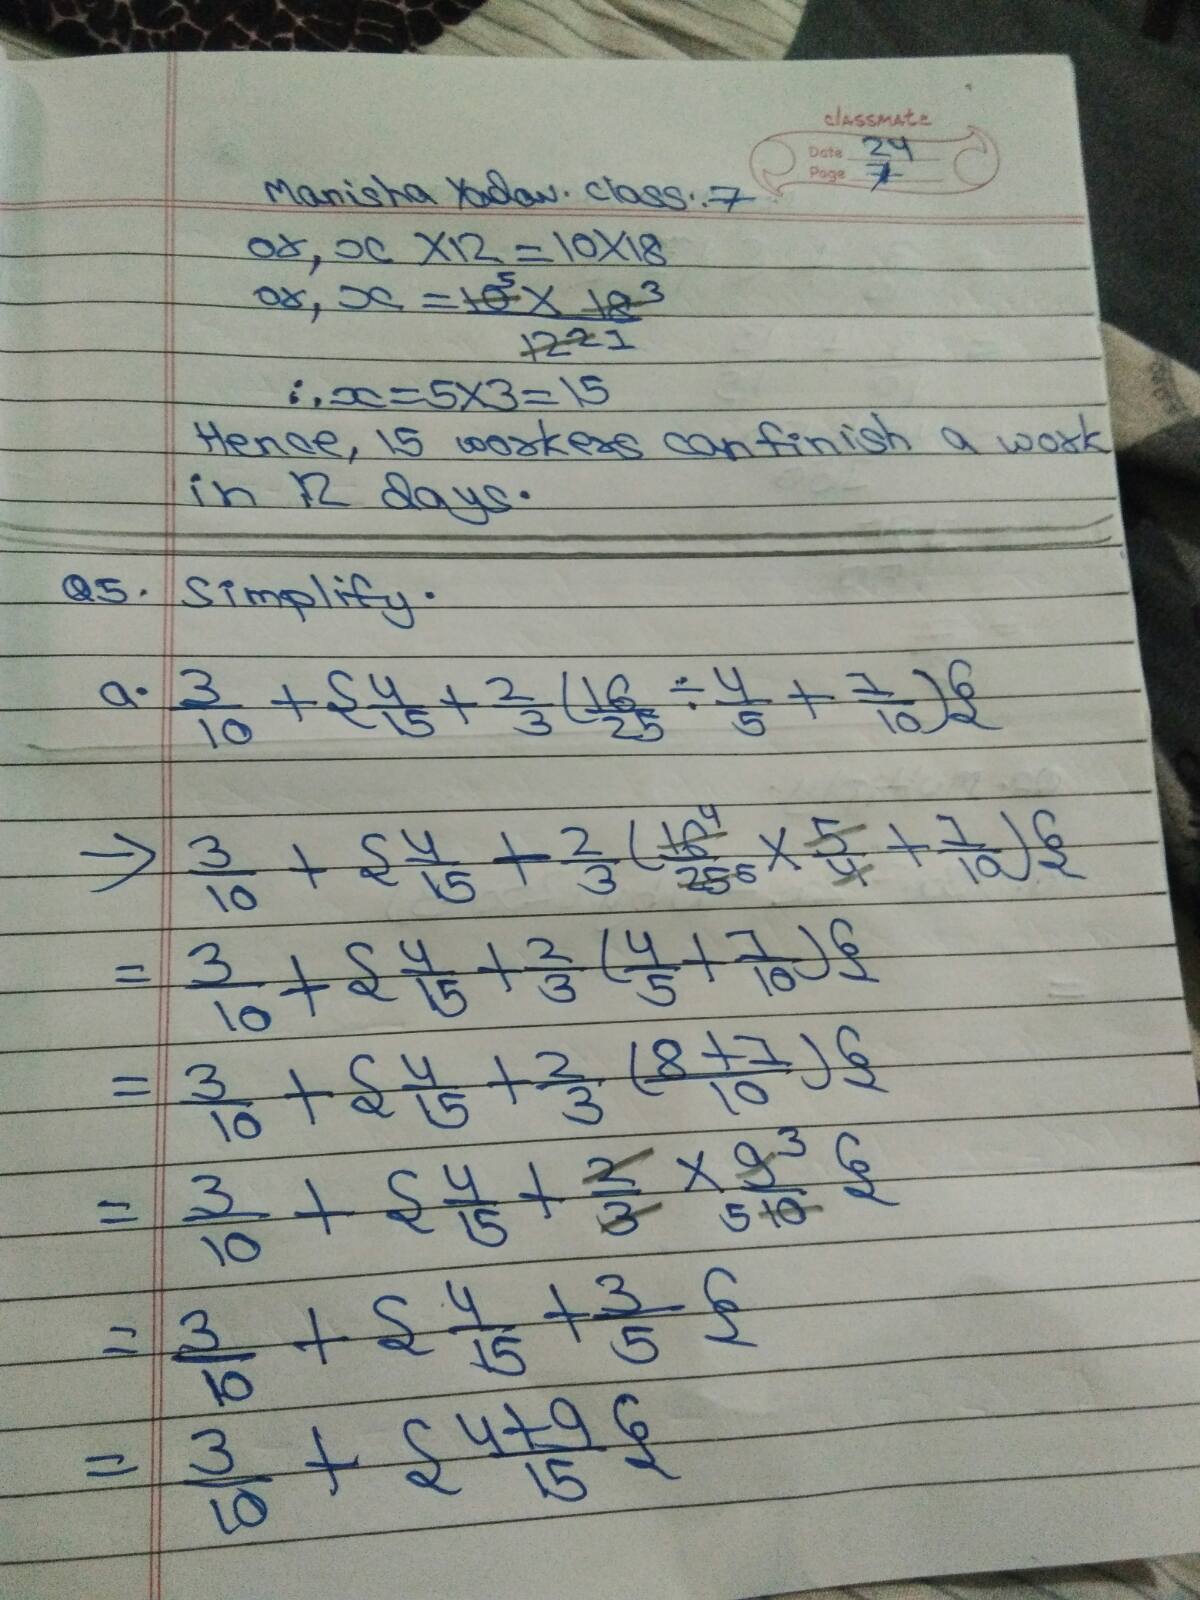 classmate
Date 24
Page 7
Manisha Yadav. class..7
or, x × 12 = 10×18
or, x = 10 5 × 18 3 / 12 2 1
∴ x = 5×3 = 15
Hence, 15 workers can finish a work
in 12 days.
Q5. Simplify.
a. 3/10 + {4/15 + 2/3 (16/25 ÷ 4/5 + 1/10)}
→ 3/10 + {4/15 + 2/3 (16 4/25 5 × 5/4 + 1/10)}
= 3/10 + {4/15 + 2/3 (4/5 + 1/10)}
= 3/10 + {4/15 + 2/3 (8+1/10)}
= 3/10 + {4/15 + 2/3 × 9 3/5 10}
= 3/10 + {4/15 + 3/5}
= 3/10 + {4+9/15}